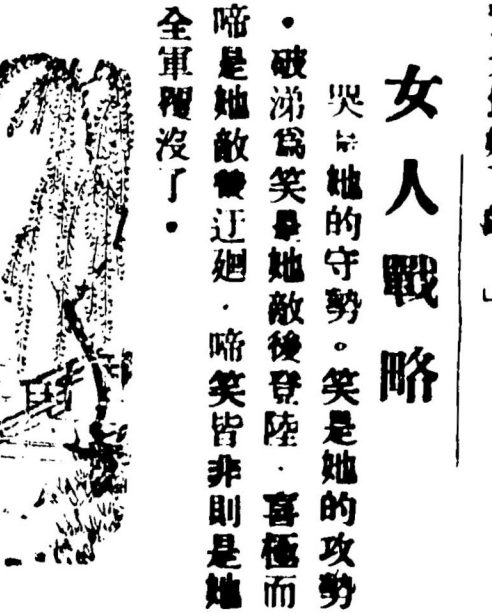 女人戰略
哭是她的守勢。笑是她的攻勢
。破涕爲笑是她敵後登陸．喜極而
啼是她敵後迂廻．啼笑皆非則是她
全軍覆沒了。